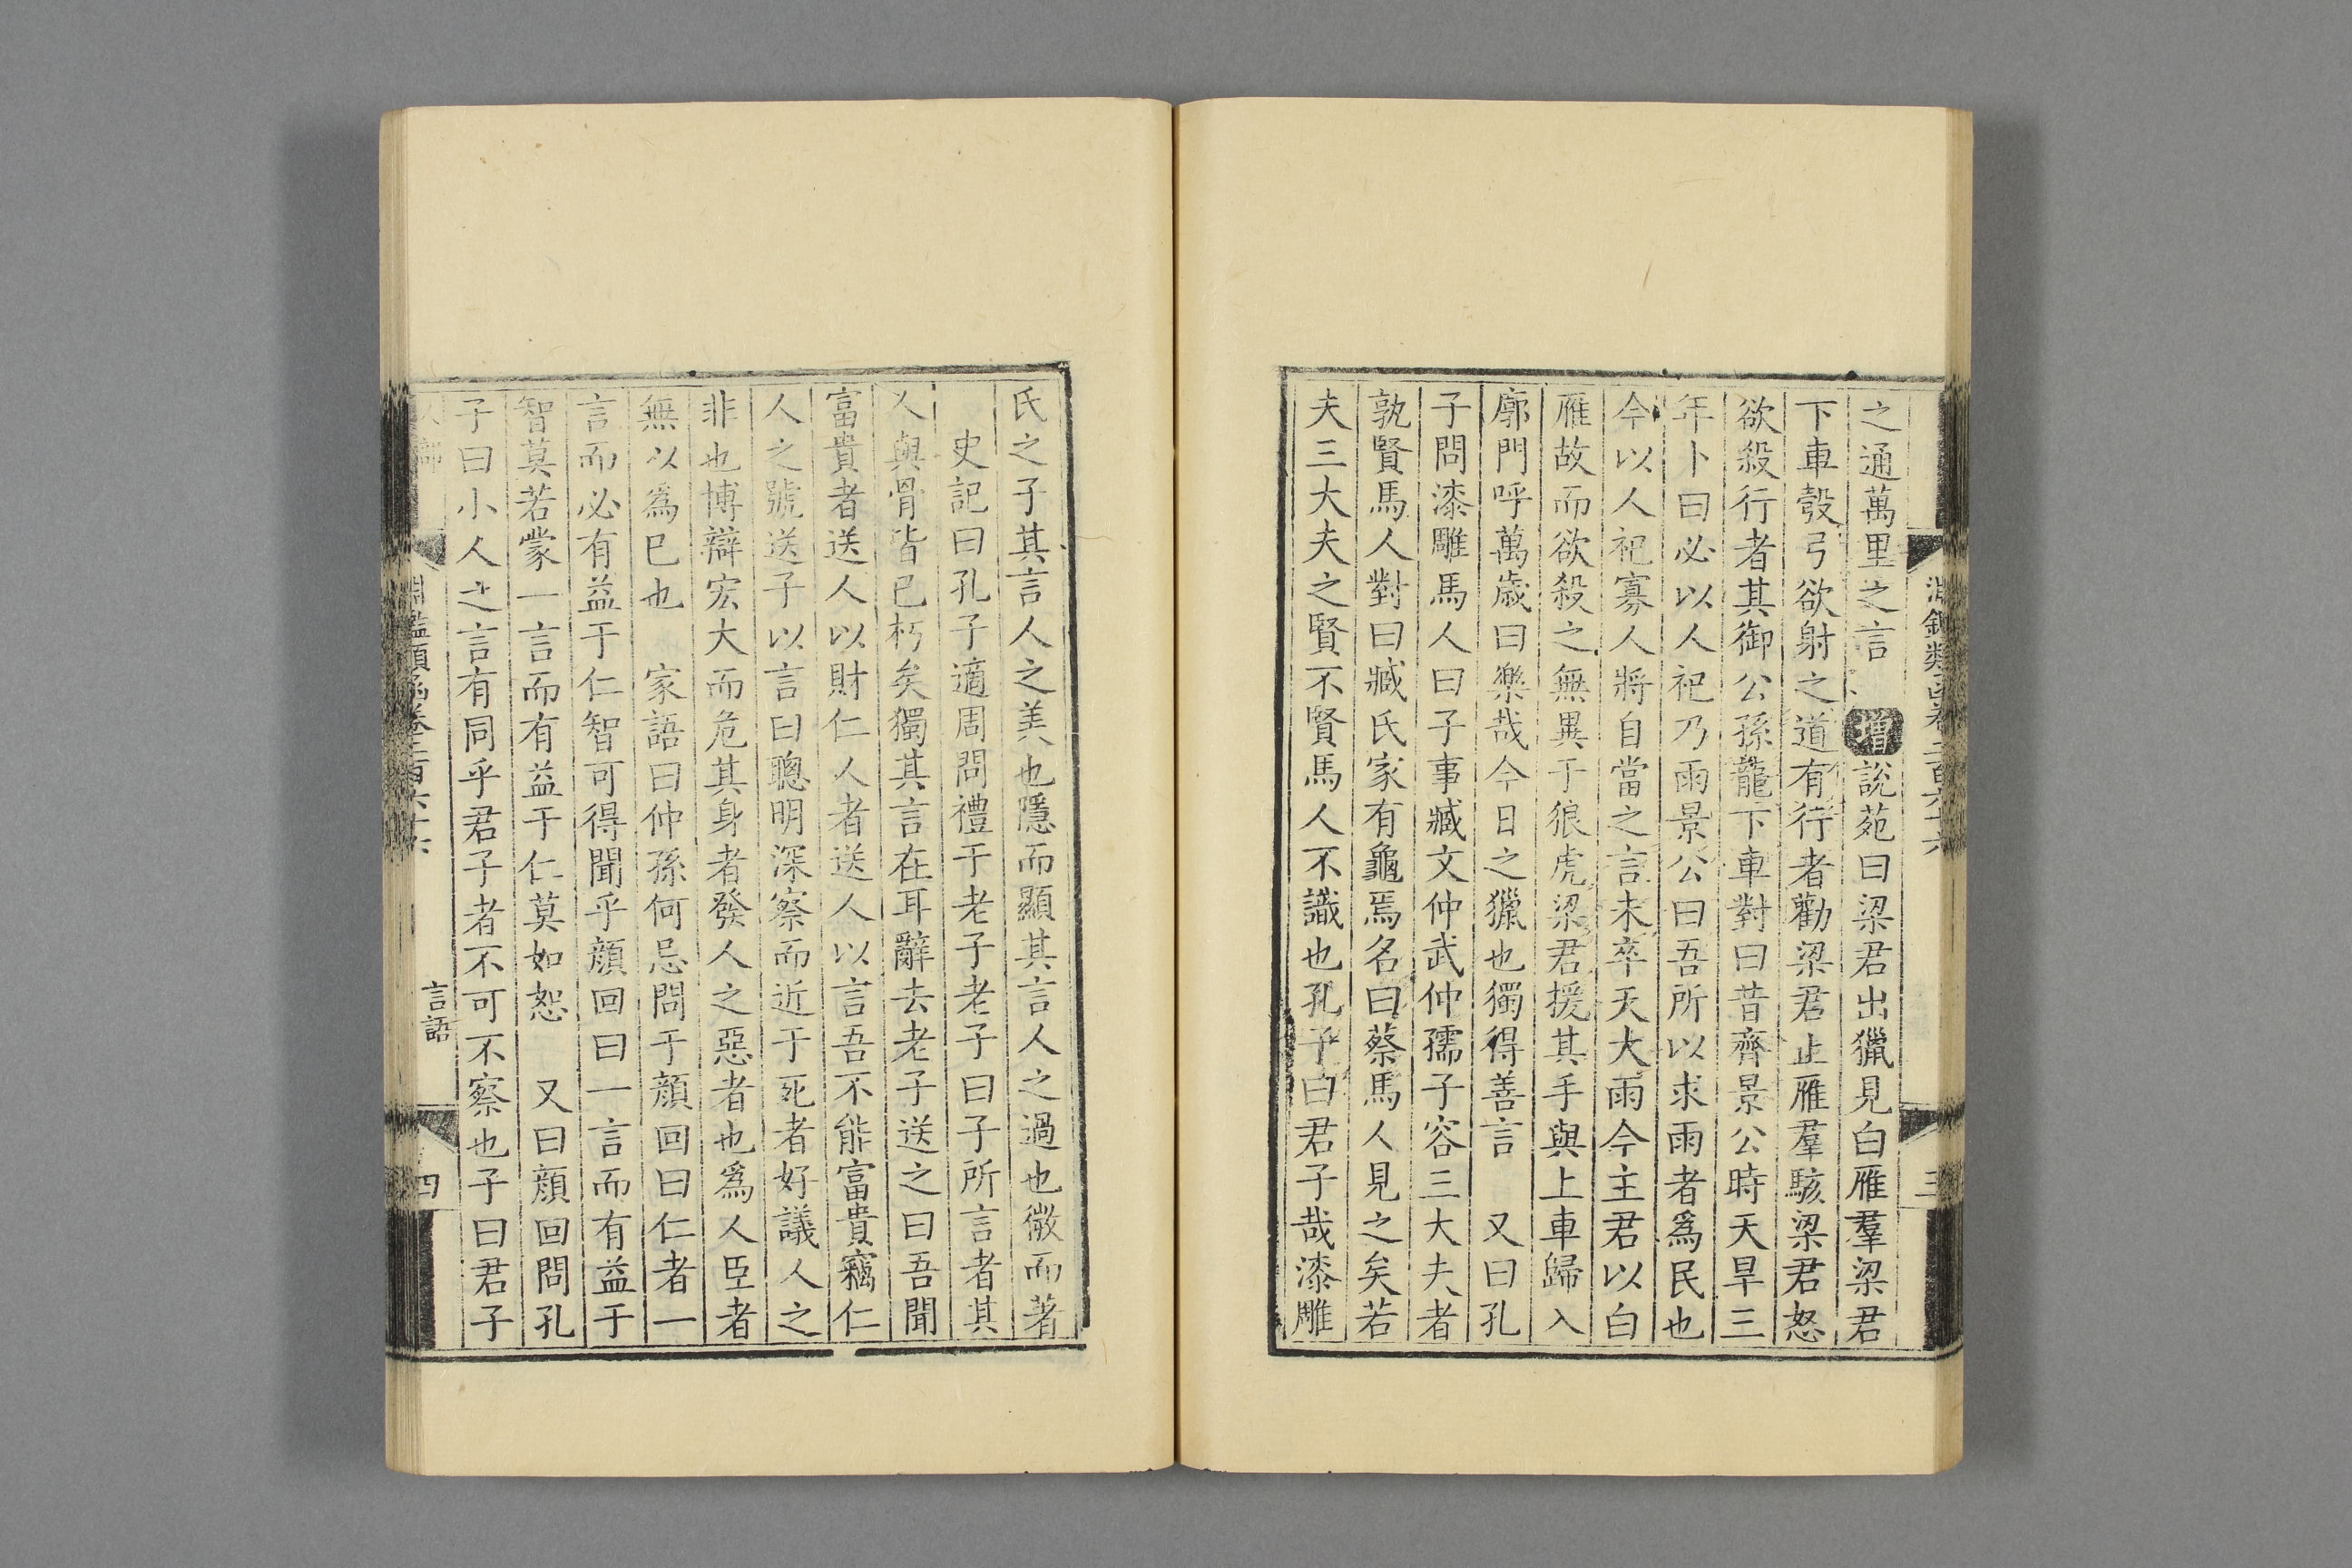 之通萬里之言　增說苑曰梁君出獵見白雁羣梁君
下車彀弓欲射之道有行者勸梁君止雁羣駭梁君怒
欲殺行者其御公孫龍下車對曰昔齊景公時天旱三
年卜曰必以人祀乃雨景公曰吾所以求雨者爲民也
今以人祀寡人將自當之言未卒天大雨今主君以白
雁故而欲殺之無異于狼虎梁君援其手與上車歸入
廓門呼萬歳曰樂哉今日之獵也獨得善言　又曰孔
子問漆雕馬人曰子事臧文仲武仲孺子容三大夫者
孰賢馬人對曰臧氏家有龜焉名曰蔡馬人見之矣若
夫三大夫之賢不賢馬人不識也孔子曰君子哉漆雕
淵鑑類函卷二百六十六
三
氏之子其言人之美也隱而顯其言人之過也微而著
史記曰孔子適周問禮于老子老子曰子所言者其
人與骨皆已朽矣獨其言在耳辭去老子送之曰吾聞
富貴者送人以財仁人者送人以言吾不能富貴竊仁
人之號送子以言曰聰明深察而近于死者好議人之
非也博辯宏大而危其身者發人之惡者也爲人臣者
無以爲已也　家語曰仲孫何忌問于顏回曰仁者一
言而必有益于仁智可得聞乎顏回曰一言而有益于
智莫若蒙一言而有益于仁莫如恕　又曰顏回問孔
子曰小人之言有同乎君子者不可不察也子曰君子
淵鑑類函卷二百六十六
言語
四